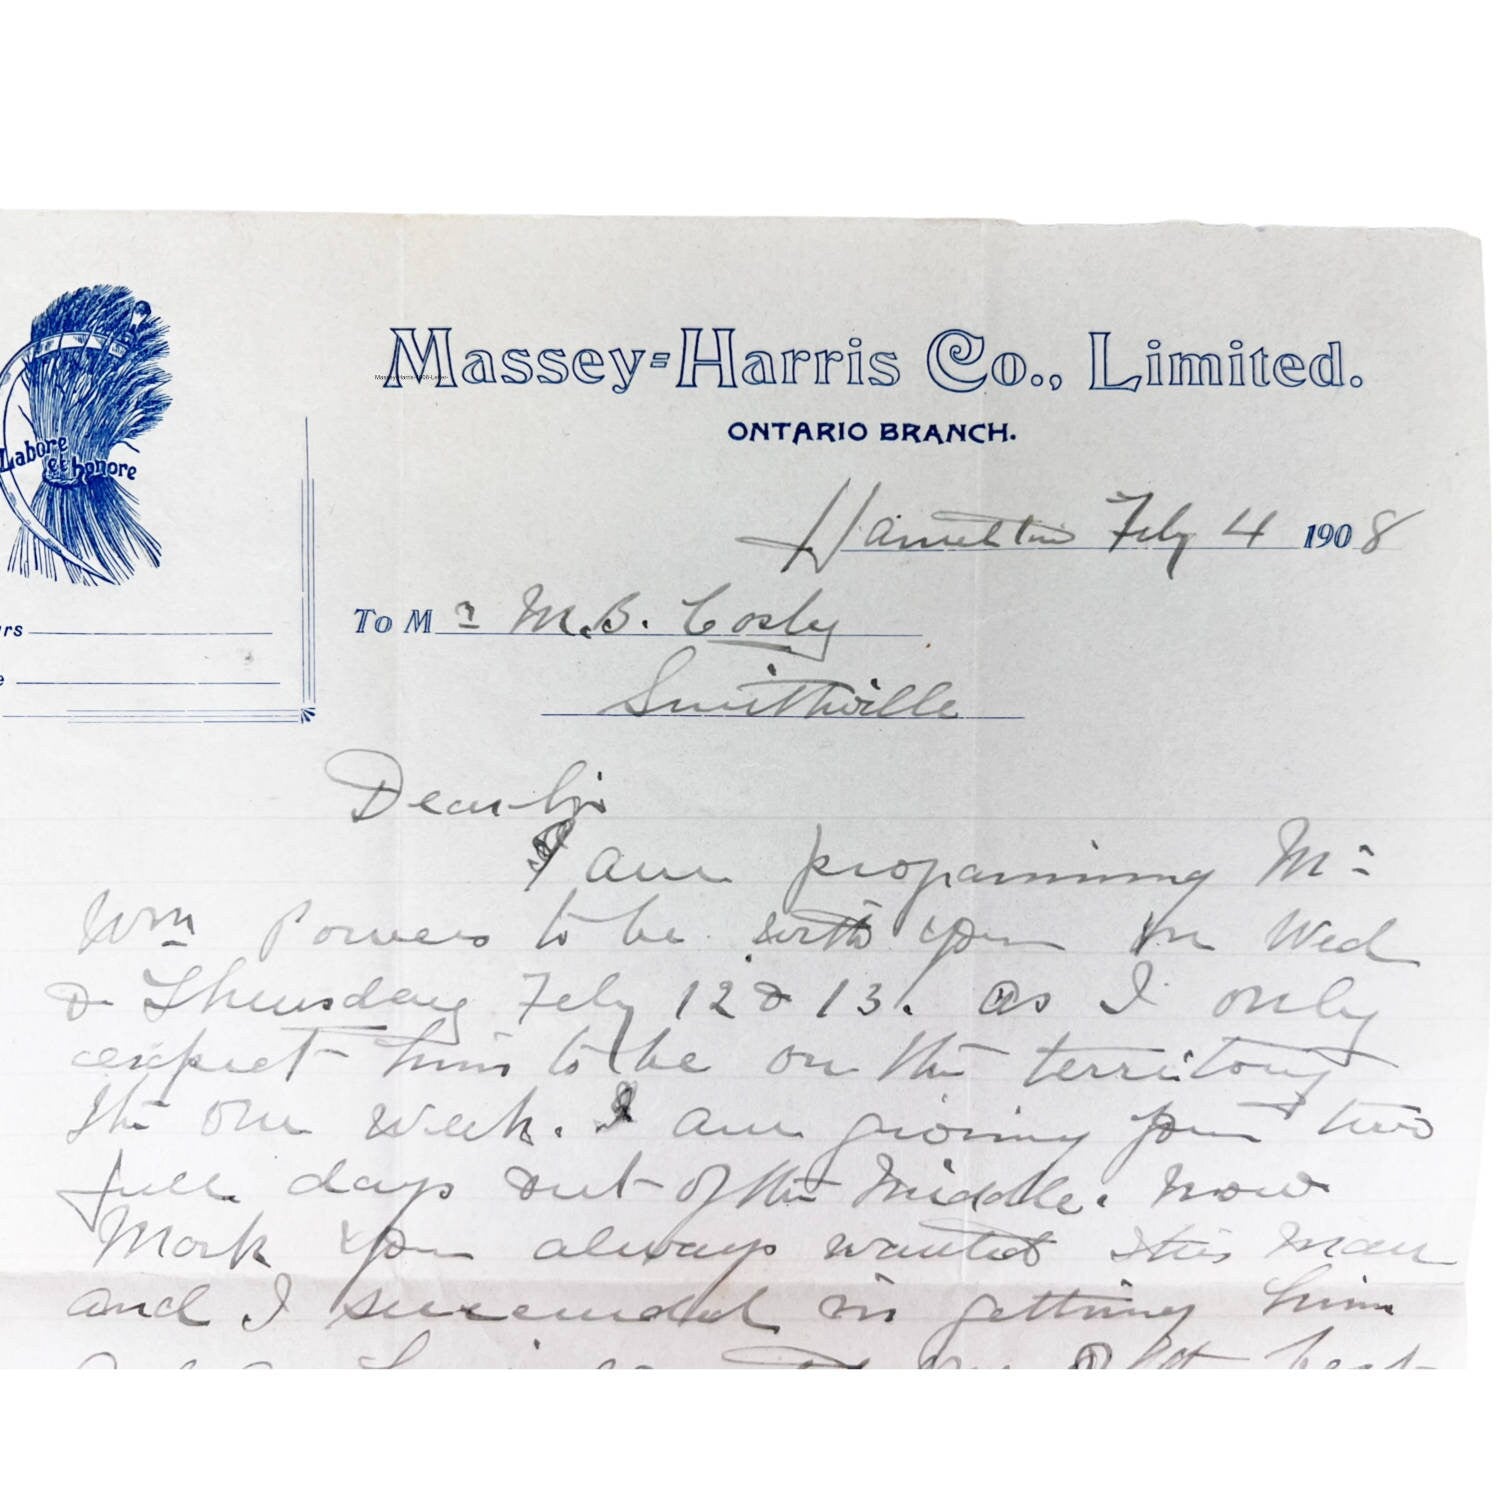 Labore
et honore
Massey-Harris Co., Limited.
ONTARIO BRANCH.
Hamilton Feby 4 1908
To Mr M.B. Cosby
Smithville
Dear Sir
I am programming Mr
Wm Powers to be with you on Wed
& Thursday Feby 12 & 13. as I only
expect him to be on the territory
the one week. I am giving you two
full days out of the middle. Now
Mark you always wanted this man
and I succeeded in getting him